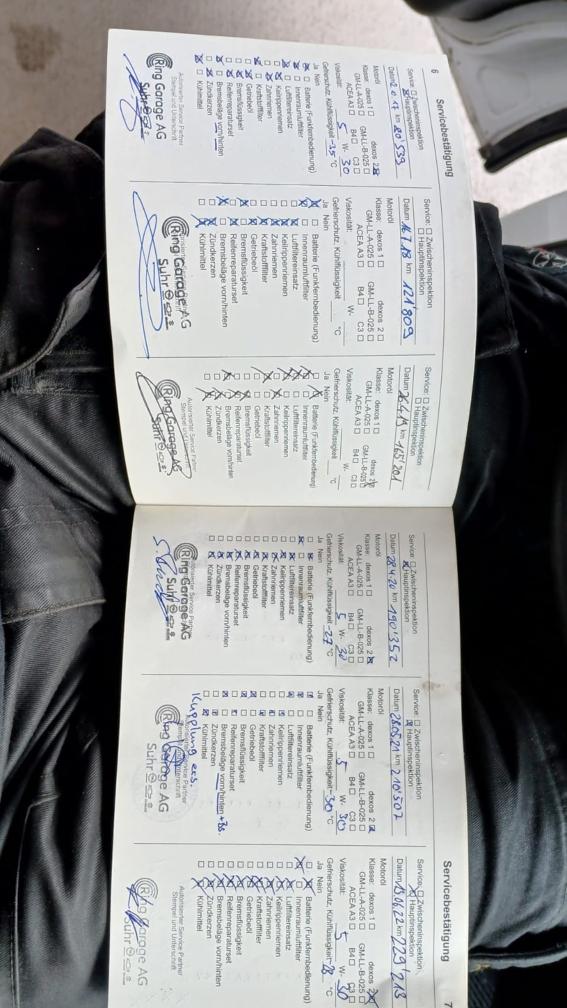 6 Servicebestätigung
Service: Zwischeninspektion
Hauptinspektion
Datum km 80'539
Motoröl
Klasse: dexos 1 dexos 2
GM-LL-A-025 GM-LL-B-025
ACEA A3 B4 C3
Viskosität: 5 W- 30
Gefrierschutz, Kühlflüssigkeit -35 °C
Ja Nein
Batterie (Funkfernbedienung)
Innenraumluftfilter
Luftfiltereinsatz
Keilrippenriemen
Zahnriemen
Kraftstofffilter
Getriebeöl
Bremsflüssigkeit
Reifenreparaturset
Bremsbeläge vorn/hinten
Zündkerzen
Kühlmittel
Autorisierter Service Partner
Stempel und Unterschrift
Ring Garage AG
Suhr
Service: Zwischeninspektion
Hauptinspektion
Datum 16.7.18 km 121'809
Motoröl
Klasse: dexos 1 dexos 2
GM-LL-A-025 GM-LL-B-025
ACEA A3 B4 C3
Viskosität: W-
Gefrierschutz, Kühlflüssigkeit °C
Ja Nein
Batterie (Funkfernbedienung)
Innenraumluftfilter
Luftfiltereinsatz
Keilrippenriemen
Zahnriemen
Kraftstofffilter
Getriebeöl
Bremsflüssigkeit
Reifenreparaturset
Bremsbeläge vorn/hinten
Zündkerzen
Kühlmittel
Ring Garage AG
Suhr
Service: Zwischeninspektion
Hauptinspektion
Datum 26.4.19 km 165'201
Motoröl
Klasse: dexos 1 dexos 2
GM-LL-A-025 GM-LL-B-025
ACEA A3 B4 C3
Viskosität: W-
Gefrierschutz, Kühlflüssigkeit °C
Ja Nein
Batterie (Funkfernbedienung)
Innenraumluftfilter
Luftfiltereinsatz
Keilrippenriemen
Zahnriemen
Kraftstofffilter
Getriebeöl
Bremsflüssigkeit
Reifenreparaturset
Bremsbeläge vorn/hinten
Zündkerzen
Kühlmittel
Autorisierter Service Partner
Stempel und Unterschrift
Ring Garage AG
Suhr
Servicebestätigung 7
Service: Zwischeninspektion
Hauptinspektion
Datum 28.4.20 km 190'352
Motoröl
Klasse: dexos 1 dexos 2
GM-LL-A-025 GM-LL-B-025
ACEA A3 B4 C3
Viskosität: 5 W- 30
Gefrierschutz, Kühlflüssigkeit -27 °C
Ja Nein
Batterie (Funkfernbedienung)
Innenraumluftfilter
Luftfiltereinsatz
Keilrippenriemen
Zahnriemen
Kraftstofffilter
Getriebeöl
Bremsflüssigkeit
Reifenreparaturset
Bremsbeläge vorn/hinten
Zündkerzen
Kühlmittel
Autorisierter Service Partner
Ring Garage AG
Suhr
Service: Zwischeninspektion
Hauptinspektion
Datum km 210'507
Motoröl
Klasse: dexos 1 dexos 2
GM-LL-A-025 GM-LL-B-025
ACEA A3 B4 C3
Viskosität: 5 W- 30
Gefrierschutz, Kühlflüssigkeit -30 °C
Ja Nein
Batterie (Funkfernbedienung)
Innenraumluftfilter
Luftfiltereinsatz
Keilrippenriemen
Zahnriemen
Kraftstofffilter
Getriebeöl
Bremsflüssigkeit
Reifenreparaturset
Bremsbeläge vorn/hinten
Zündkerzen
Kühlmittel
Kupplung ers.
Ring Garage AG
Suhr
Service: Zwischeninspektion
Hauptinspektion
Datum km 229'218
Motoröl
Klasse: dexos 1 dexos 2
GM-LL-A-025 GM-LL-B-025
ACEA A3 B4 C3
Viskosität: 5 W- 30
Gefrierschutz, Kühlflüssigkeit -28 °C
Ja Nein
Batterie (Funkfernbedienung)
Innenraumluftfilter
Luftfiltereinsatz
Keilrippenriemen
Zahnriemen
Kraftstofffilter
Getriebeöl
Bremsflüssigkeit
Reifenreparaturset
Bremsbeläge vorn/hinten
Zündkerzen
Kühlmittel
Autorisierter Service Partner
Stempel und Unterschrift
Ring Garage AG
Suhr